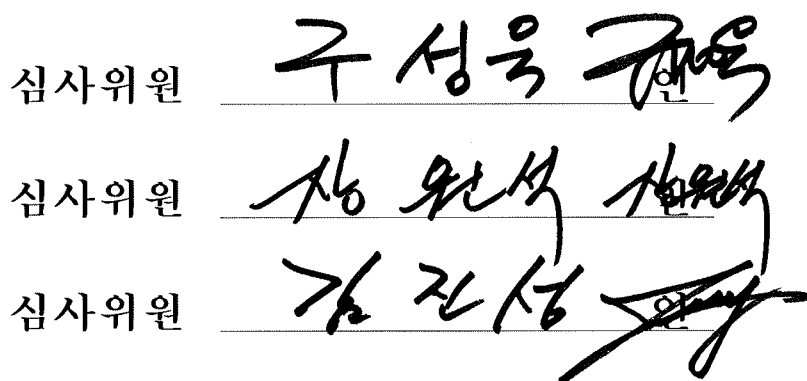 심사위원 구 성욱 인
심사위원 장 원석 인
심사위원 김 진성 인